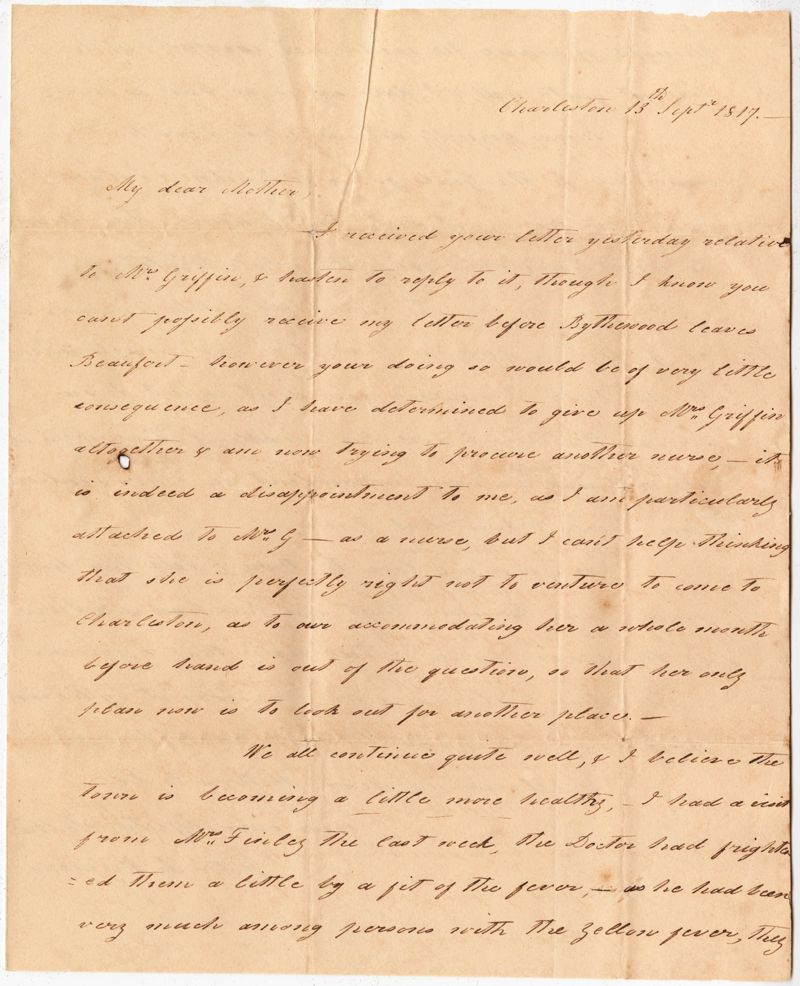 Charleston 13th Septr 1817.—
My dear Mother,
I received your letter yesterday relative
to Mrs. Griffin, & hasten to reply to it, though I know you
cant possibly receive my letter before Bythewood leaves
Beaufort – however your doing so would be of very little
consequence, as I have determined to give up Mrs. Griffin
altogether & am now trying to procure another nurse, – it
is indeed a disappointment to me, as I am particularly
attached to Mrs. G — as a nurse, but I can't help thinking
that she is perfectly right not to venture to come to
Charleston, as to our accommodating her a whole month
before hand is out of the question, so that her only
plan now is to look out for another place. —
We all continue quite well, & I believe the
town is becoming a little more healthy, – I had a visit
from Mrs. Finley the last week, the Doctor had frighten
=ed them a little by a fit of the fever, — as he had been
very much among persons with the yellow fever, they